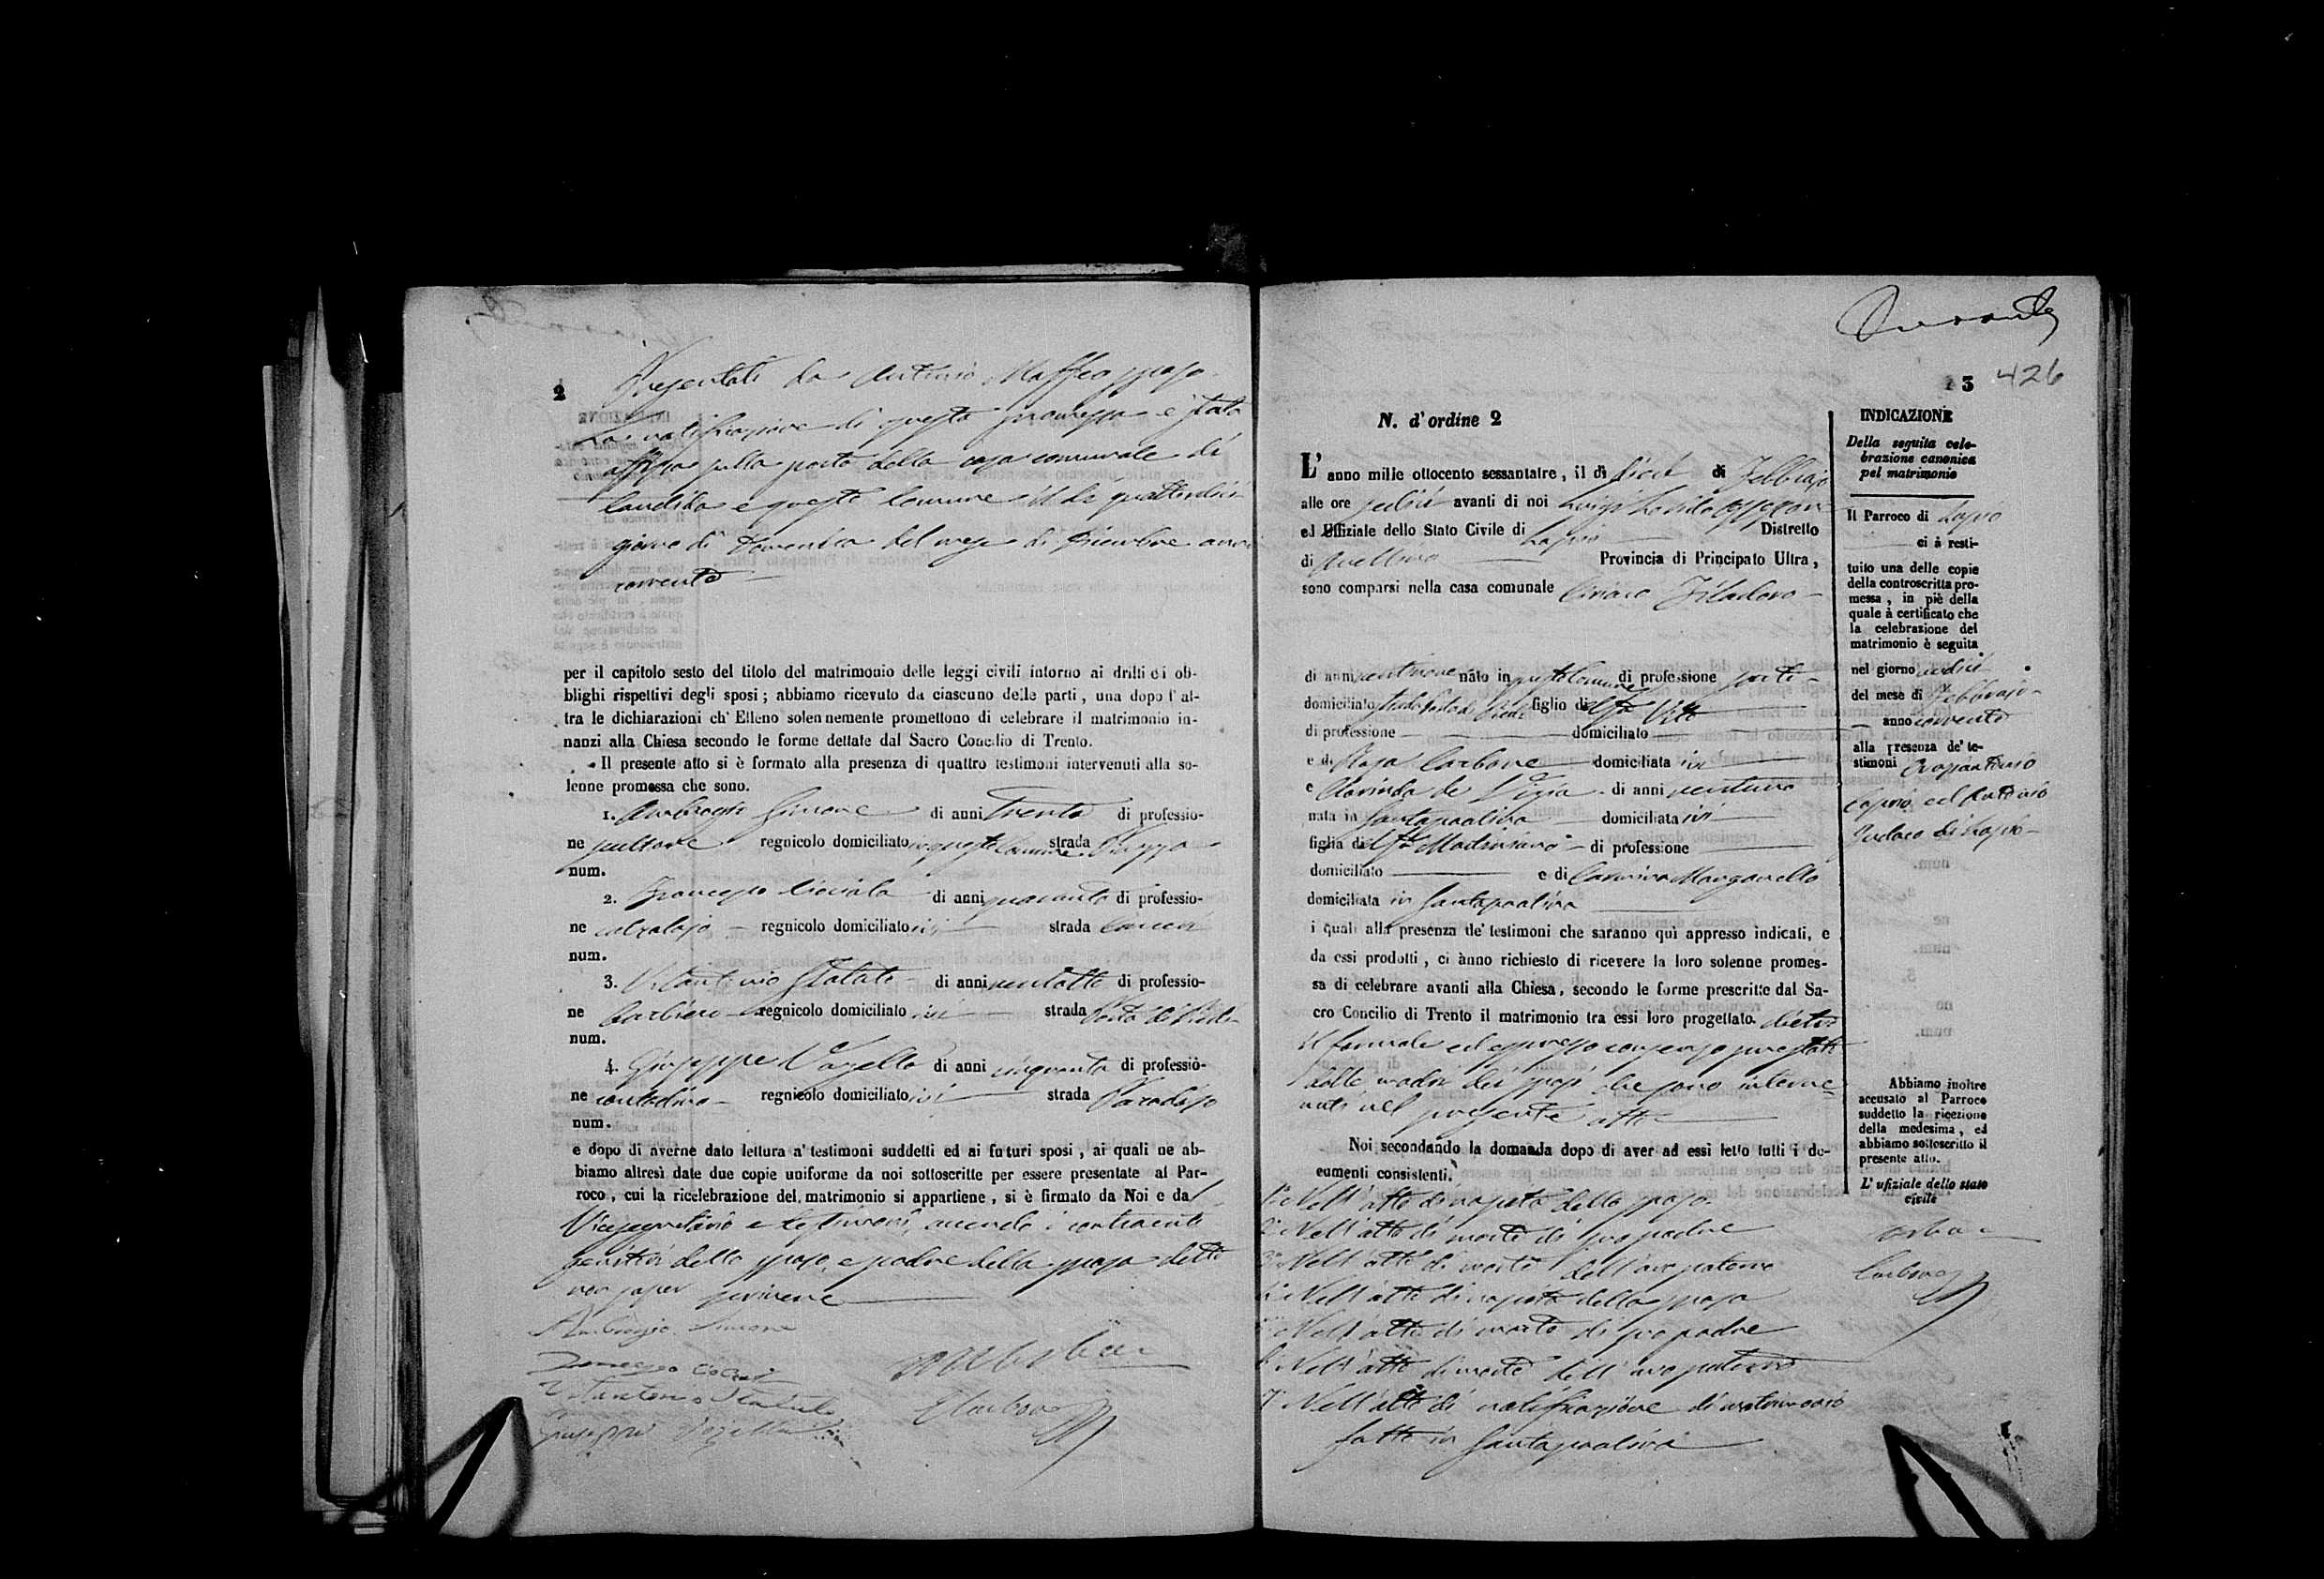 2
Presentati da Antonio Maffeo sposo
La notificazione di questa promessa è stata
affissa sulla porta della casa comunale di
Candida e questo Comune il dì quattordici
giorno di Domenica del mese di Dicembre anno
corrente
per il capitolo sesto del titolo del matrimonio delle leggi civili intorno ai dritti ed ob-
blighi rispettivi degli sposi ; abbiamo ricevuto da ciascuno delle parti , una dopo l' al-
tra le dichiarazioni ch' Elleno solennemente promettono di celebrare il matrimonio in-
nanzi alla Chiesa secondo le forme dettate dal Sacro Concilio di Trento.
Il presente atto si è formato alla presenza di quattro testimoni intervenuti alla so-
lenne promessa che sono.
1. Ambrogio Simone di anni Trenta di professio-
ne regnicolo domiciliato in questo Comune strada Piazza
num.
2. Francesco di anni quaranta di professio-
ne calzolajo regnicolo domiciliato ivi strada
num.
3. Vitantonio Statuto di anni ventotto di professio-
ne barbiere regnicolo domiciliato ivi strada Porta di Piedi
num.
4. Giuseppe Vozella di anni cinquanta di professio-
ne contadino regnicolo domiciliato ivi strada Paradiso
num.
e dopo di averne dato lettura a' testimoni suddetti ed ai futuri sposi , ai quali ne ab-
biamo altresì date due copie uniforme da noi sottoscritte per essere presentate al Par-
roco , cui la ricelebrazione del matrimonio si appartiene , si è firmato da Noi e dal
Vicesegretario e testimoni, avendo i contraenti
genitori dello sposo, e padre della sposa detto
non saper scrivere
Ambrogio Simone
Francesco
Vitantonio Statuto
Giuseppe Vozella
Carbone
426
3
N. d' ordine 2
L' anno mille ottocento sessantatre , il dì dieci di Febbrajo
alle ore sedici avanti di noi Luigi
ed Uffiziale dello Stato Civile di Lapio Distretto
di Avellino Provincia di Principato Ultra ,
sono comparsi nella casa comunale Ciriaco Filadoro
di anni ventinove nato in questo Comune di professione
domiciliato strada Porta di Piedi figlio del fu Vito
di professione domiciliato
e di Rosa Carbone domiciliata ivi
e Clorinda de di anni ventuno
nata in Santapaolina domiciliata ivi
figlia del fu di professione
domiciliato e di Carmina Manganiello
domiciliata in Santapaolina
i quali alla presenza de' testimoni che saranno qui appresso indicati, e
da essi prodotti , ci ànno richiesto di ricevere la loro solenne promes-
sa di celebrare avanti alla Chiesa, secondo le forme prescritte dal Sa-
cro Concilio di Trento il matrimonio tra essi loro progettato. dietro
il formale ed espresso consenso prestato
dalle madri dei sposi che sono interve-
nuti nel presente atto
Noi secondando la domanda dopo di aver ad essi letto tutti i do-
cumenti consistenti.
1º Nell' atto di nascita dello sposo.
2º Nell' atto di morte di suo padre
3º Nell' atto di morte dell' avo paterno
4º Nell' atto di nascita della sposa
5º Nell' atto di morte di suo padre
6º Nell' atto di morte dell' avo paterno
7º Nell' atto di notificazione di matrimonio
fatto in Santapaolina
INDICAZIONE
Della seguita cele-
brazione canonica
pel matrimonio
Il Parroco di Lapio
ci à resti-
tuito una delle copie
della controscritta pro-
messa , in piè della
quale à certificato che
la celebrazione del
matrimonio è seguita
nel giorno undici
del mese di Febbrajo
anno corrente
alla presenza de' te-
stimoni
Caprio, ed Antonio
di Lapio
Abbiamo inoltre
accusato al Parroco
suddetto la ricezione
della medesima , ed
abbiamo sottoscritto il
presente atto.
L' ufiziale dello stato
civile
Carbone